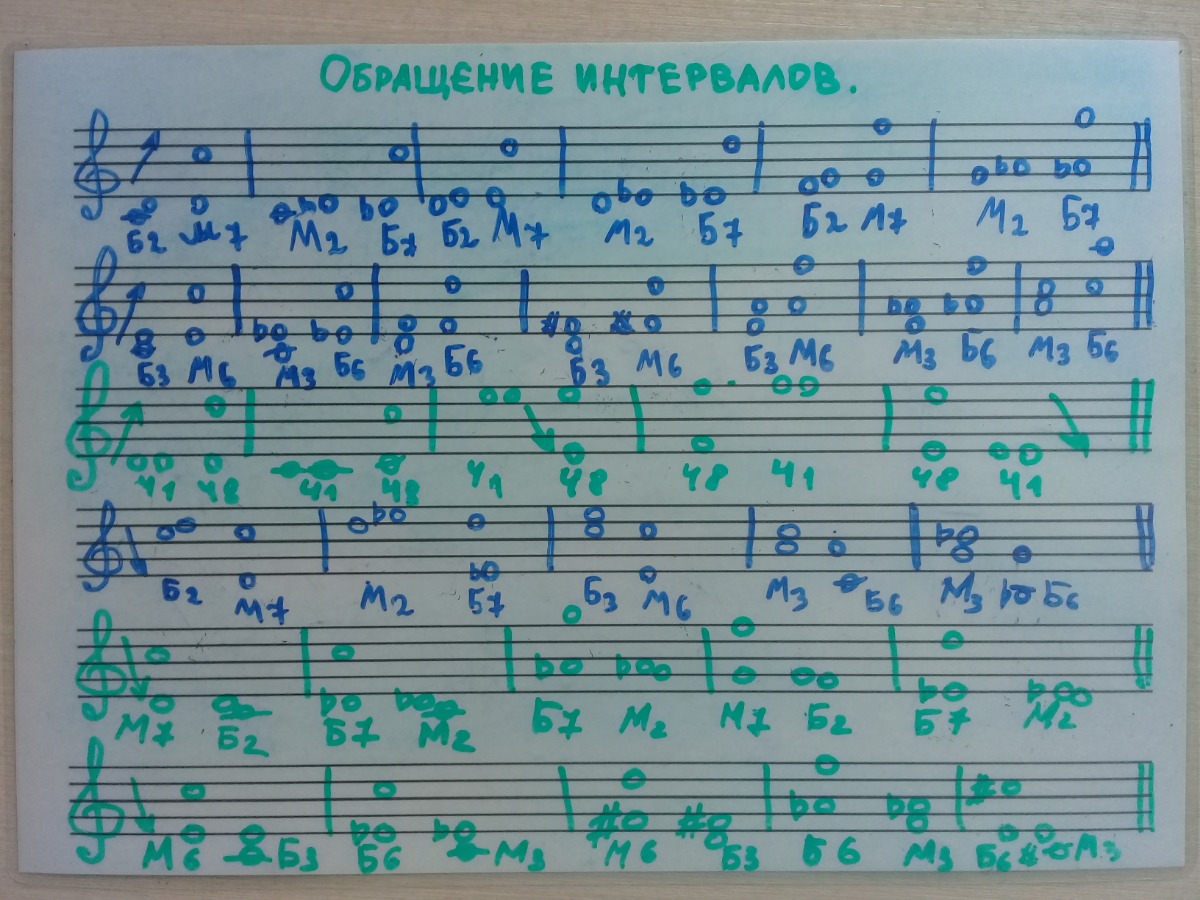 ОБРАЩЕНИЕ ИНТЕРВАЛОВ.
Б2 М7 М2 Б7 Б2 М7 М2 Б7 Б2 М7 М2 Б7
Б3 М6 М3 Б6 М3 Б6 Б3 М6 Б3 М6 М3 Б6 М3 Б6
Ч1 Ч8 Ч1 Ч8 Ч1 Ч8 Ч8 Ч1 Ч8 Ч1
Б2 М7 М2 Б7 Б3 М6 М3 Б6 М3 Б6
М7 Б2 Б7 М2 Б7 М2 М7 Б2 Б7 М2
М6 Б3 Б6 М3 М6 Б3 Б6 М3 Б6 М3